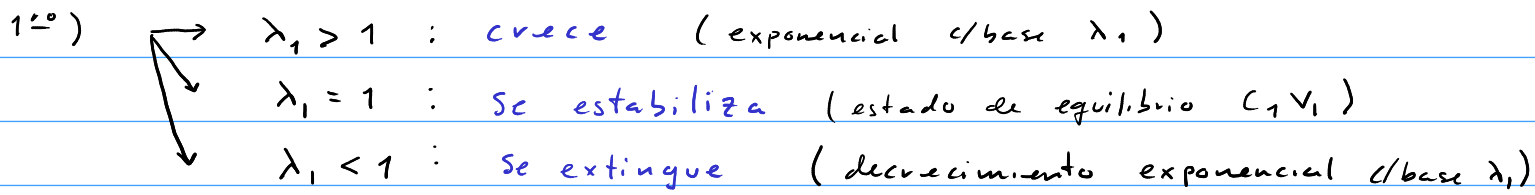 1ero) λ₁ > 1 : crece (exponencial c/base λ₁)
λ₁ = 1 : se estabiliza (estado de equilibrio C₁V₁)
λ₁ < 1 : se extingue (decrecimiento exponencial c/base λ₁)